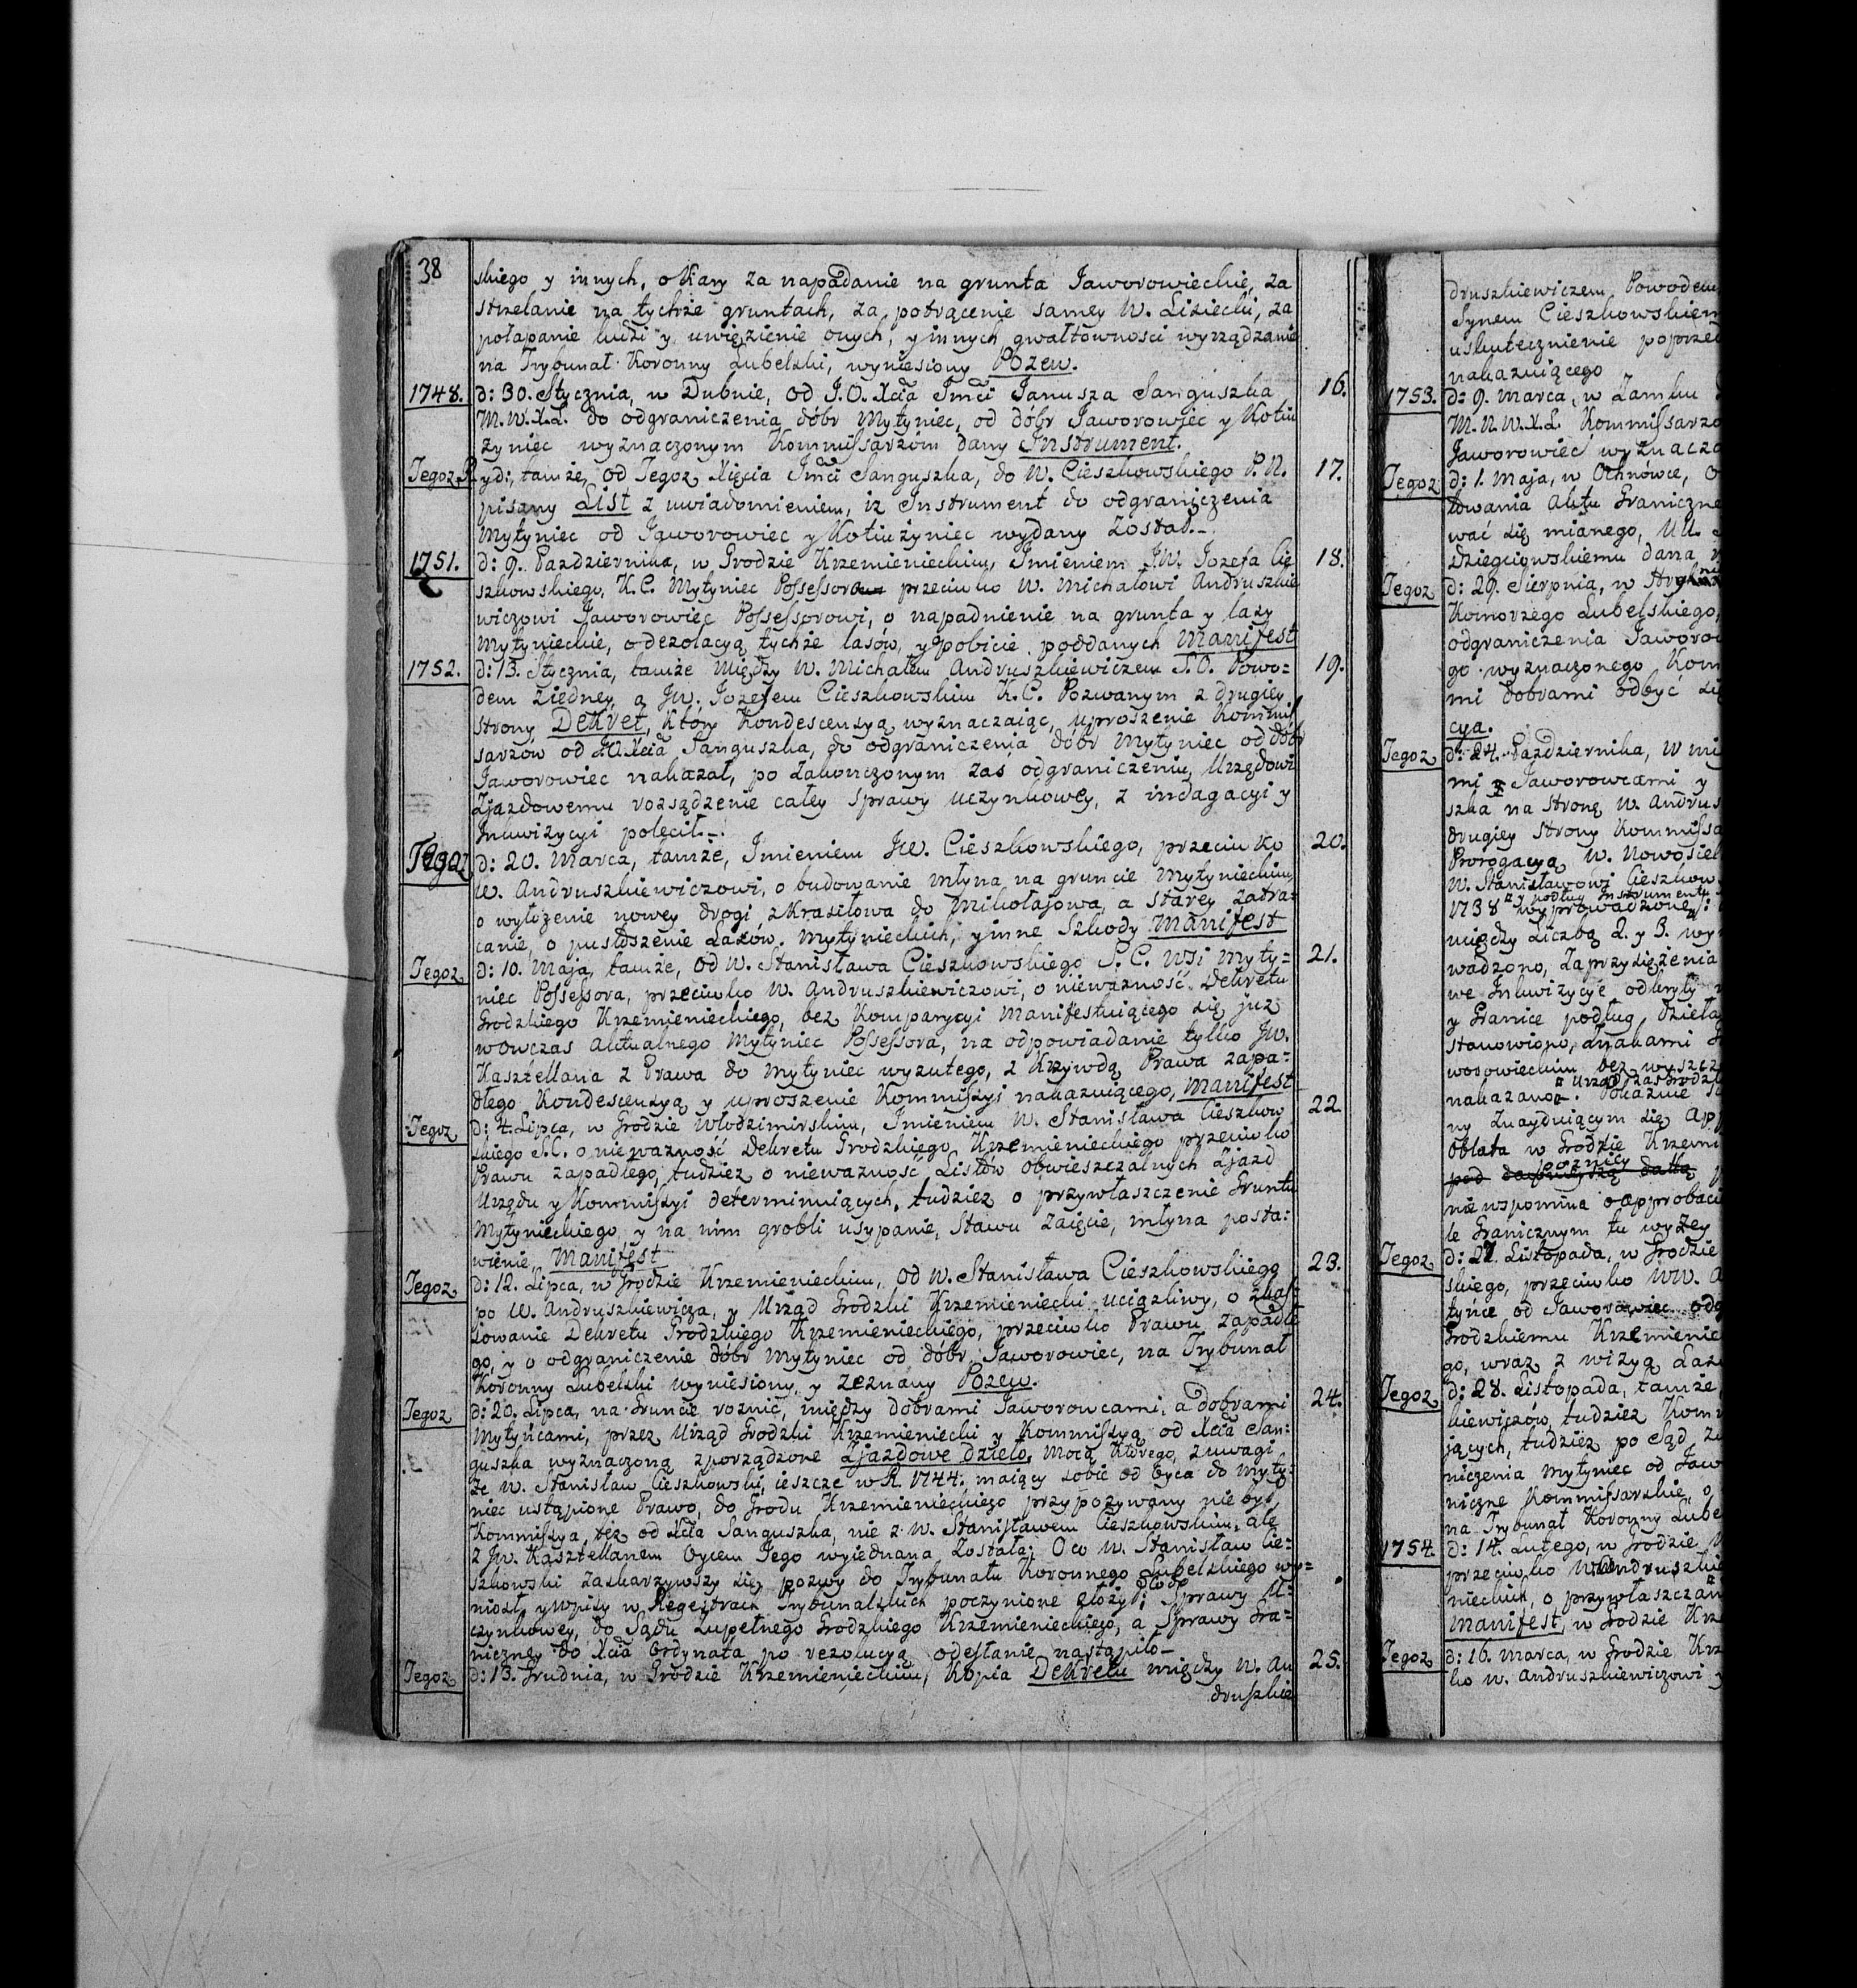 38
skiego y innych, o Kary za napadanie na grunta Jaworowieckie, za
strzelanie na tychże gruntach, za potrącenie samey W. Lisiecki, za
połapanie ludzi y uwięzienie onych, y innych gwałtownosci wyrządzanie
na Trybunał Koronny Lubelski, wyniesiony Pozew.
1748. d: 30. Stycznia, w Dubnie, od J.O. Xcia Jmći Janusza Sanguszka 16.
M.W.X.L. do odgraniczenia dóbr Mytyniec, od dóbr Jaworowiec y Kotiu
żyniec wyznaczonym Kommissarzom dany Instrument.
Tegoż R. y d:, tamże, od Tegoż Xięcia Jmći Sanguszka, do W. Cieszkowskiego P.N. 17.
pisany List z uwiadomieniem, iz Instrument do odgraniczenia
Mytyniec od Jaworowiec y Kotiużyniec wydany został.
1751. d: 9. Pazdziernika, w Grodzie Krzemienieckim, Imieniem JW. Jozefa Cie 18.
szkowskiego, K.C. Mytyniec Possessora przeciwko W. Michałowi Andruszkie
wiczowi Jaworowiec Possessorowi, o napadnienie na grunta y lasy
Mytynieckie, o dezolacyą tychże lasów, y pobicie poddanych Manifest
1752. d: 13. Stycznia, tamże między W. Michałem Andruszkiewiczem S.O. Powo= 19.
dem z iedney, a JW. Jozefem Cieszkowskim K.C. Pozwanym z drugiey
strony Dekret, który Kondescensyą wyznaczaiąc, uproszenie Kommis
sarzów od JO. Xcia Sanguszka, do odgraniczenia dóbr Mytyniec od dóbr
Jaworowiec nakazał, po zakonczonym zaś odgraniczeniu, Urzędowi
Zjazdowemu rozsądzenie całey sprawy uczynkowey, z indagacyi y
Inkwizycyi polecił.
Tegoż d: 20. Marca, tamże, Imieniem JW. Cieszkowskiego, przeciwko 20.
W. Andruszkiewiczowi, o budowanie młyna na gruncie Mytynieckim,
o wytyżenie nowey drogi z Krasiłowa do Mikołajowa, a starey zatra=
canie, o pustoszenie Lasów Mytynieckich, y inne szkody Manifest
Tegoż d: 10. Maja, tamże, od W. Stanisława Cieszkowskiego S.C. wsi Myty= 21.
niec Possessora, przeciwko W. Andruszkiewiczowi, o nieważność Dekretu
Grodzkiego Krzemienieckiego, bez Komparycyi Manifestuiącego się już
wowczas aktualnego Mytyniec Possessora, na odpowiadanie tylko JW.
Kasztellana z Prawa do Mytyniec wyzutego, z Krzywdą Prawa zapa=
dłego Kondescensyą y uproszenie Kommissyi nakazuiącego, Manifest
Tegoż d: 4. Lipca, w Grodzie Włodzimirskim, Imieniem W. Stanisława Cieszkow 22.
skiego S.C. o nieważność Dekretu Grodzkiego Krzemienieckiego przeciwko
Prawu zapadłego, tudziez o nieważność Listów obwieszczalnych Zjazd
Urzędu y Kommissyi determinuiących, tudziez o przywłaszczenie Gruntu
Mytynieckiego, y na nim grobli usypanie, Stawu zaięcie, młyna posta=
wienie, Manifest
Tegoż d: 12. Lipca, w Grodzie Krzemienieckim, od W. Stanisława Cieszkowskiego 23.
po W. Andruszkiewicza, y Urząd Grodzki Krzemieniecki uciążliwy, o skas=
sowanie Dekretu Grodzkiego Krzemienieckiego, przeciwko Prawu zapadłe
go, y o odgraniczenie dóbr Mytyniec od dóbr Jaworowiec, na Trybunał
Koronny Lubelski wyniesiony, y zeznany Pozew.
Tegoż d: 20. Lipca, na Gruncie roznic, między dobrami Jaworowcami, a dobrami 24.
Mytyńcami, przez Urząd Grodzki Krzemieniecki y Kommissyą od Xcia San=
guszka wyznaczoną zporządzone Zjazdowe dzieło, mocą którego, z uwagi
że W. Stanisław Cieszkowski, ieszcze w R. 1744. maiący sobie od Oyca do Myty=
niec ustąpione Prawo, do Grodu Krzemienieckiego przypozywany nie był,
Kommissya też od Xcia Sanguszka, nie z W. Stanisławem Cieszkowskim, ale
z JW. Kasztellanem Oycem Jego wyiednana została; O co W. Stanisław Cie=
szkowski zaskarżywszy się pozwy do Trybunału Koronnego Lubelskiego wy=
niosł, y wpisy w Regestrach Trybunalskich poczynione złożył; Sprawy U=
czynkowey, do Sądu zupełnego Grodzkiego Krzemienieckiego, a Sprawy Gra=
niczney do Xcia Ordynata po rezolucyą odesłanie nastąpiło
Tegoż d: 13. Grudnia, w Grodzie Krzemienieckim, Kopia Dekretu między W. An 25.
druszkie
druszkiewiczem Powodem
Synem Cieszkowskiem
uskutecznienie poprzed
nakazuiącego
1753. d: 9. Marca, w Zamku
M.N.W.X.L. Kommissarzo
Jaworowiec wyznacza
Tegoż d: 1. Maja, w Ochnówce, o
towania Aktu Graniczne
wać się mianego, UU.
Dzięgciowskiemu dana
Tegoż d: 29. Sierpnia, w
Komorzego Lubelskiego,
odgraniczenia Jaworo
go wyznaczonego Kom
mi dobrami odbyć się
cya.
Tegoż d: 24. Pazdziernika, w mi
mi Jaworowcami y
szka na stronę W. Andrus
drugiey strony Kommissa
Prorogacyą W. Nowosiel
W. Stanisławowi Cieszkow
y podług Instrumentu
1738 wyprowadzone
między Liczbą 2. y 3. wy
wadzono, Zaprzysiężenia
we Inkwizycye odkryły
y Granice podług dzieła
stanowiono, znakami
wosowieckim bez wyszcz
Urząd zaś Grodz
nakazano. Pokaźnie
ny znayduiącym się App
Oblata w Grodzie Krzemi
pod
nie wspomina o approbacy
le Granicznym tu wyżey
Tegoż d: 27. Listopada, w Grodzie
skiego, przeciwko WW. A
tyńce od Jaworowiec odg
Grodzkiemu Krzemienie
go, wraz z wizyą Las
Tegoż d: 28. Listopada, tamże,
kiewiczów, tudziez Kom
jących, tudziez po Sąd
niczenia Mytyniec od Jaw
niczne Kommissarskie, o
na Trybunał Koronny Lube
1754. d: 14. Lutego, w Grodzie
przeciwko W. Andruszkie
nieckich, o przywłaszczan
Manifest, w Grodzie Krz
Tegoż d: 16. Marca, w Grodzie Krz
ko W. Andruszkiewiczowi y